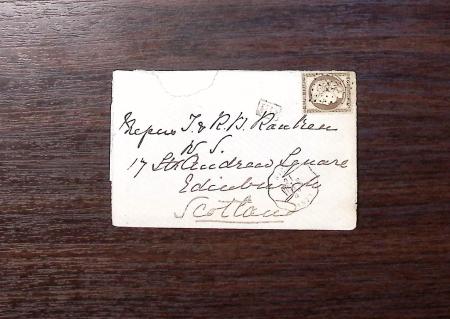 Messrs J. & R. B. Ranken
W. S.
17 St. Andrew Square
Edinburgh
Scotland